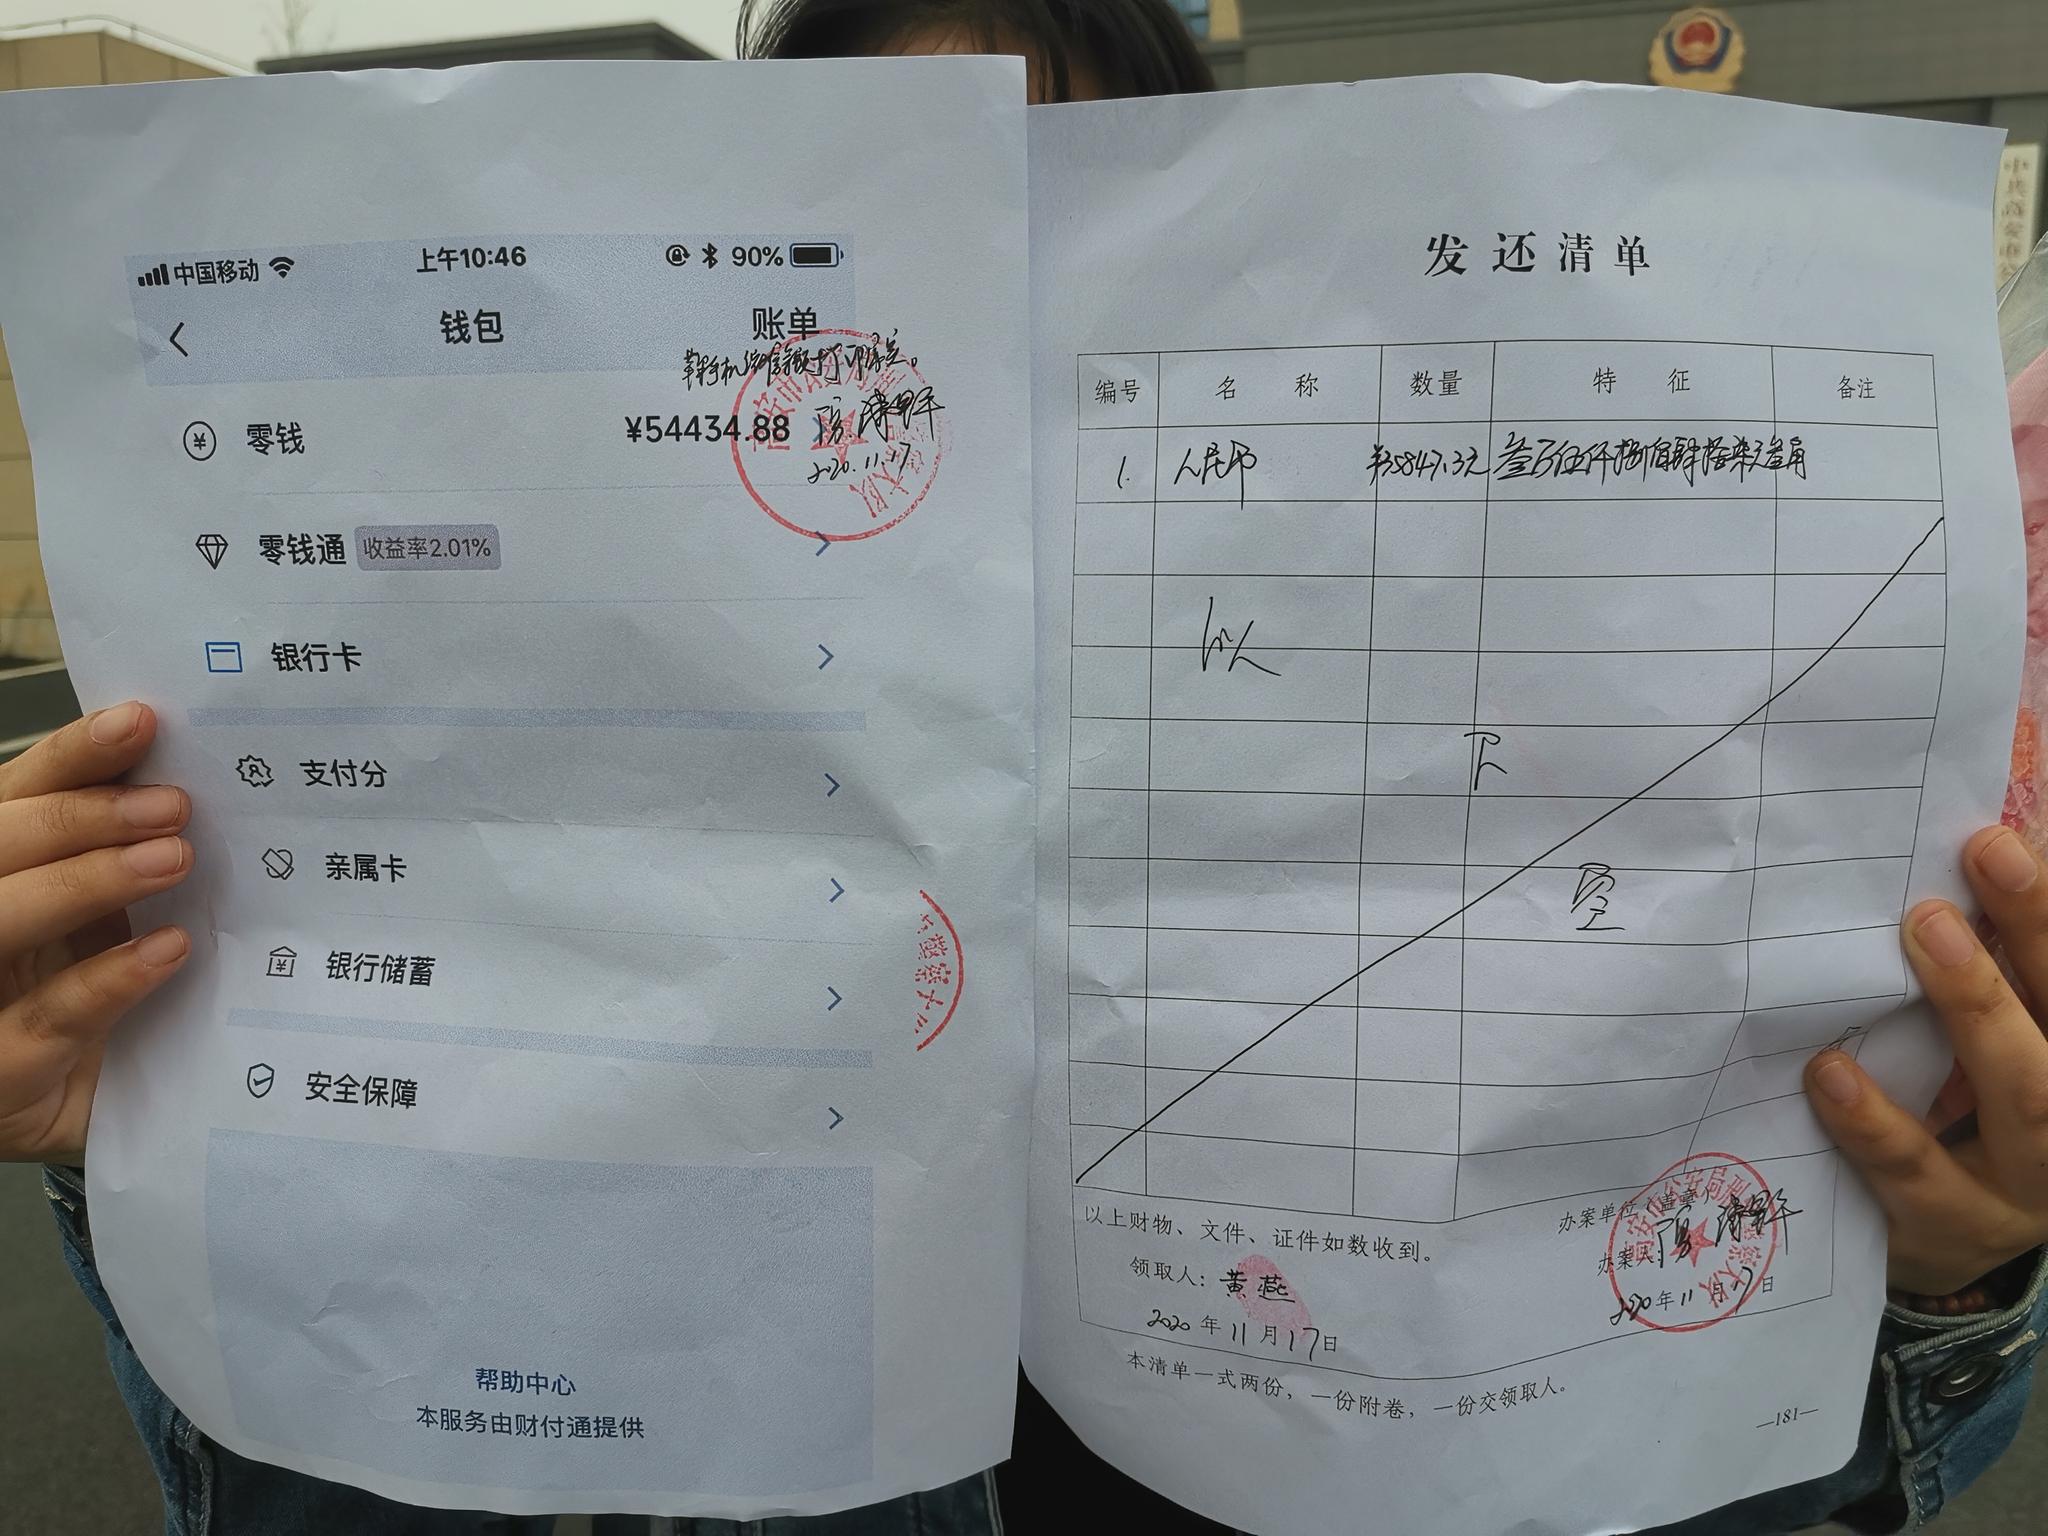 中国移动
上午10:46
90%
钱包
账单
零钱
¥54434.88
2020.11.17
零钱通
收益率2.01%
银行卡
支付分
亲属卡
银行储蓄
安全保障
帮助中心
本服务由财付通提供
警察大
发还清单
编号 名称 数量 特征 备注
1. 人民币 ¥35847.3元 叁万伍仟捌佰肆拾柒元叁角
以
下
空
以上财物、文件、证件如数收到。
领取人：黄燕
2020年11月17日
办案单位（盖章）
办案人：
高安市公安局刑警察大队
2020年11月17日
本清单一式两份，一份附卷，一份交领取人。
—181—